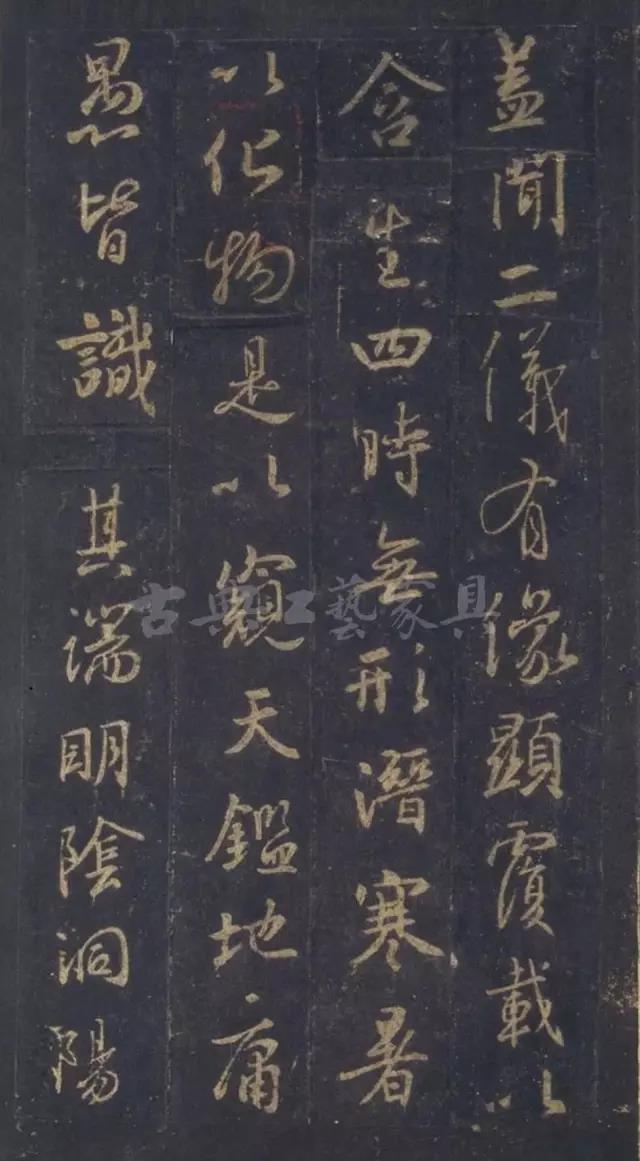 蓋聞二儀有像顯覆載以
含生四時無形潛寒暑
以化物是以窺天鑑地庸
愚皆識其端明陰洞陽
古典工藝家具